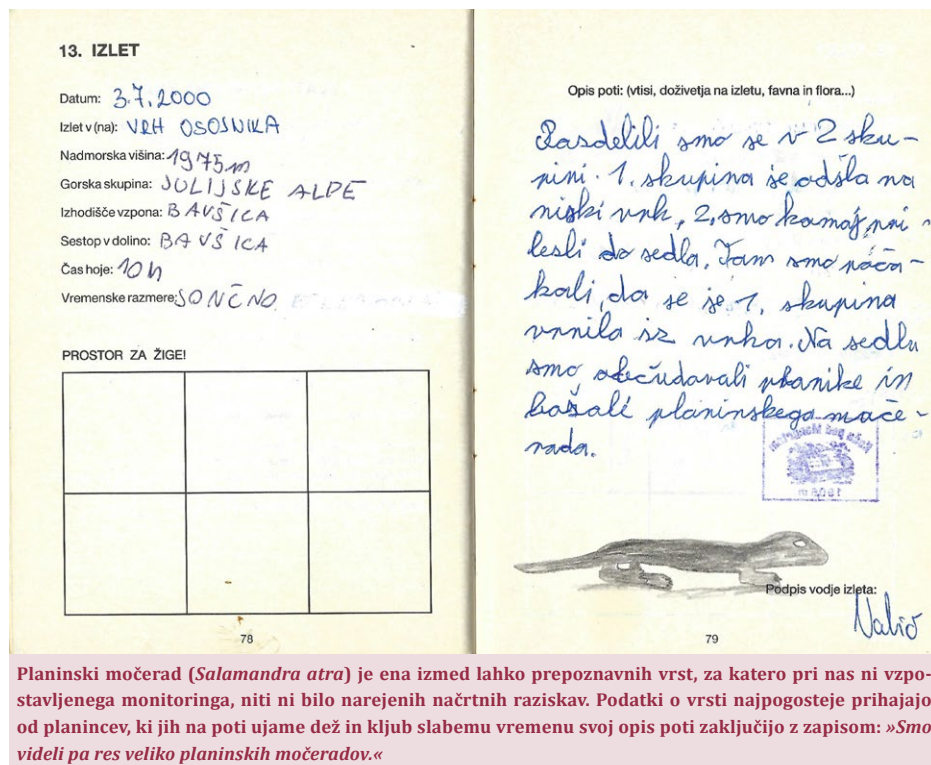 13. IZLET
Datum: 3.7.2000
Izlet v (na): VRH OSOJNIKA
Nadmorska višina: 1975m
Gorska skupina: JULIJSKE ALPE
Izhodišče vzpona: BAVŠICA
Sestop v dolino: BAVŠICA
Čas hoje: 10h
Vremenske razmere: SONČNO
PROSTOR ZA ŽIGE!
78
Opis poti: (vtisi, doživetja na izletu, favna in flora...)
Razdelili smo se v 2 sku-
pini. 1. skupina je odšla na
niski vrh, 2. smo komaj pri-
lesli do sedla. Tam smo poča-
kali, da se je 1. skupina
vrnila iz vrha. Na sedlu
smo občudovali planike in
božali planinskega moče-
rada.
Podpis vodje izleta:
79
Planinski močerad (Salamandra atra) je ena izmed lahko prepoznavnih vrst, za katero pri nas ni vzpo-
stavljenega monitoringa, niti ni bilo narejenih načrtnih raziskav. Podatki o vrsti najpogosteje prihajajo
od planincev, ki jih na poti ujame dež in kljub slabemu vremenu svoj opis poti zaključijo z zapisom: »Smo
videli pa res veliko planinskih močeradov.«